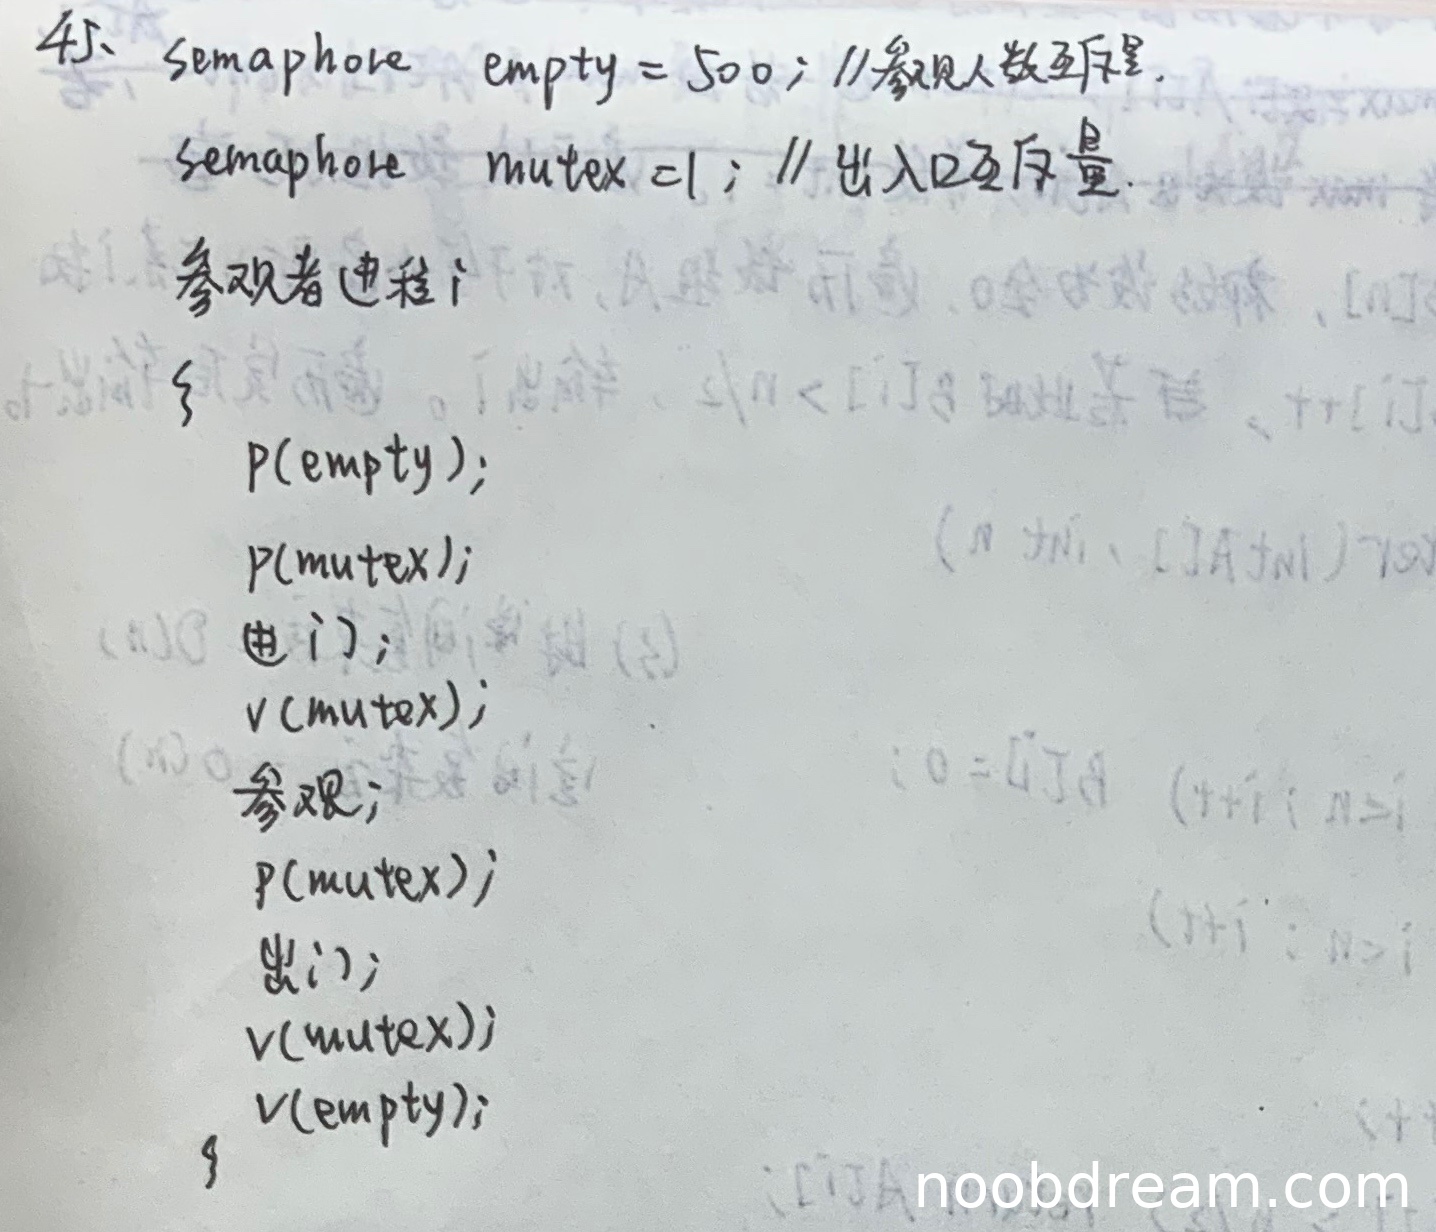 45、 semaphore empty = 500; //参观人数互斥量.
semaphore mutex =1; // 出入口互斥量.
参观者进程i
{
P(empty);
P(mutex);
进门;
V(mutex);
参观;
P(mutex);
出门;
V(mutex);
V(empty);
}
noobdream.com